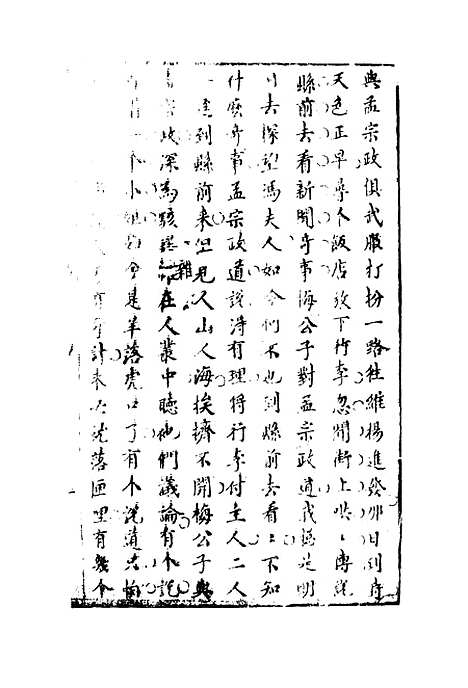 與孟宗政俱武服打扮一路往維揚進發那日到府
天色正早尋个飯店放下行李忽聞街上哄〻傳說
縣前去看新聞奇事梅公子對孟宗政道我搃是明
日去探望馮夫人如今們不也到縣前去看〻不知
什麽奇事孟宗政道說得有理将行李付主人二人
一逕到縣前来但見人山人海挨擠不開梅公子與
宗政深為駭異雜在人叢中聽他們議論有个說
一个小姐今是羊落虎口了有个說道
計来
落匣里有幾个